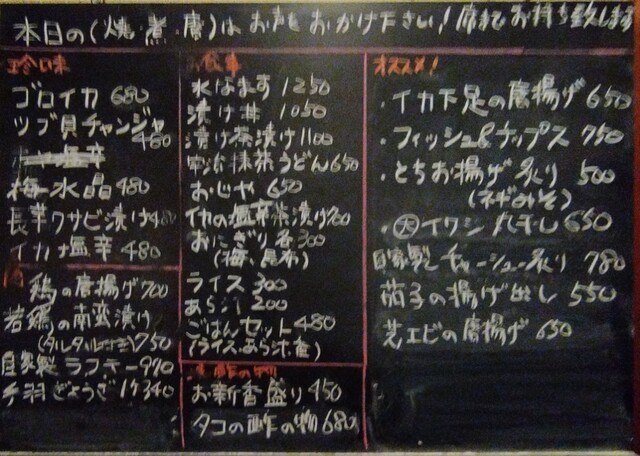 本日の(焼・煮・唐)はお声をおかけ下さい!席までお持ち致します
珍味
ゴロイカ 680
ツブ貝チャンジャ
480
梅水晶 480
長芋ワサビ漬け 480
イカ塩辛 480
肉
鶏の唐揚げ 700
若鶏の南蛮漬け
(タルタル付き) 750
自家製ラフテー 970
手羽ぎょうざ 1ヶ340
お食事
水なます 1250
漬け丼 1050
漬け茶漬け 1100
宇治抹茶うどん 650
おじや 650
イカの塩辛茶漬け 700
おにぎり各 300
(梅、昆布)
ライス 300
あら汁 200
ごはんセット 480
(ライス、あら汁、香)
酢の物
お新香盛り 450
タコの酢の物 680
オススメ!
・イカ下足の唐揚げ 650
・フィッシュ&チップス 750
・とちお揚げ炙り 500
(ネギみそ)
・大イワシ丸干し 650
自家製チャーシュー炙り 780
茄子の揚げ出し 550
芝エビの唐揚げ 650